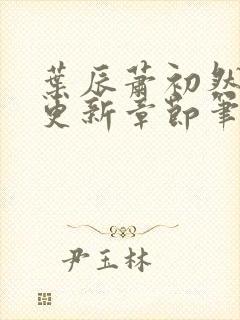 葉辰蕭初然
更新章節筆
尹玉林